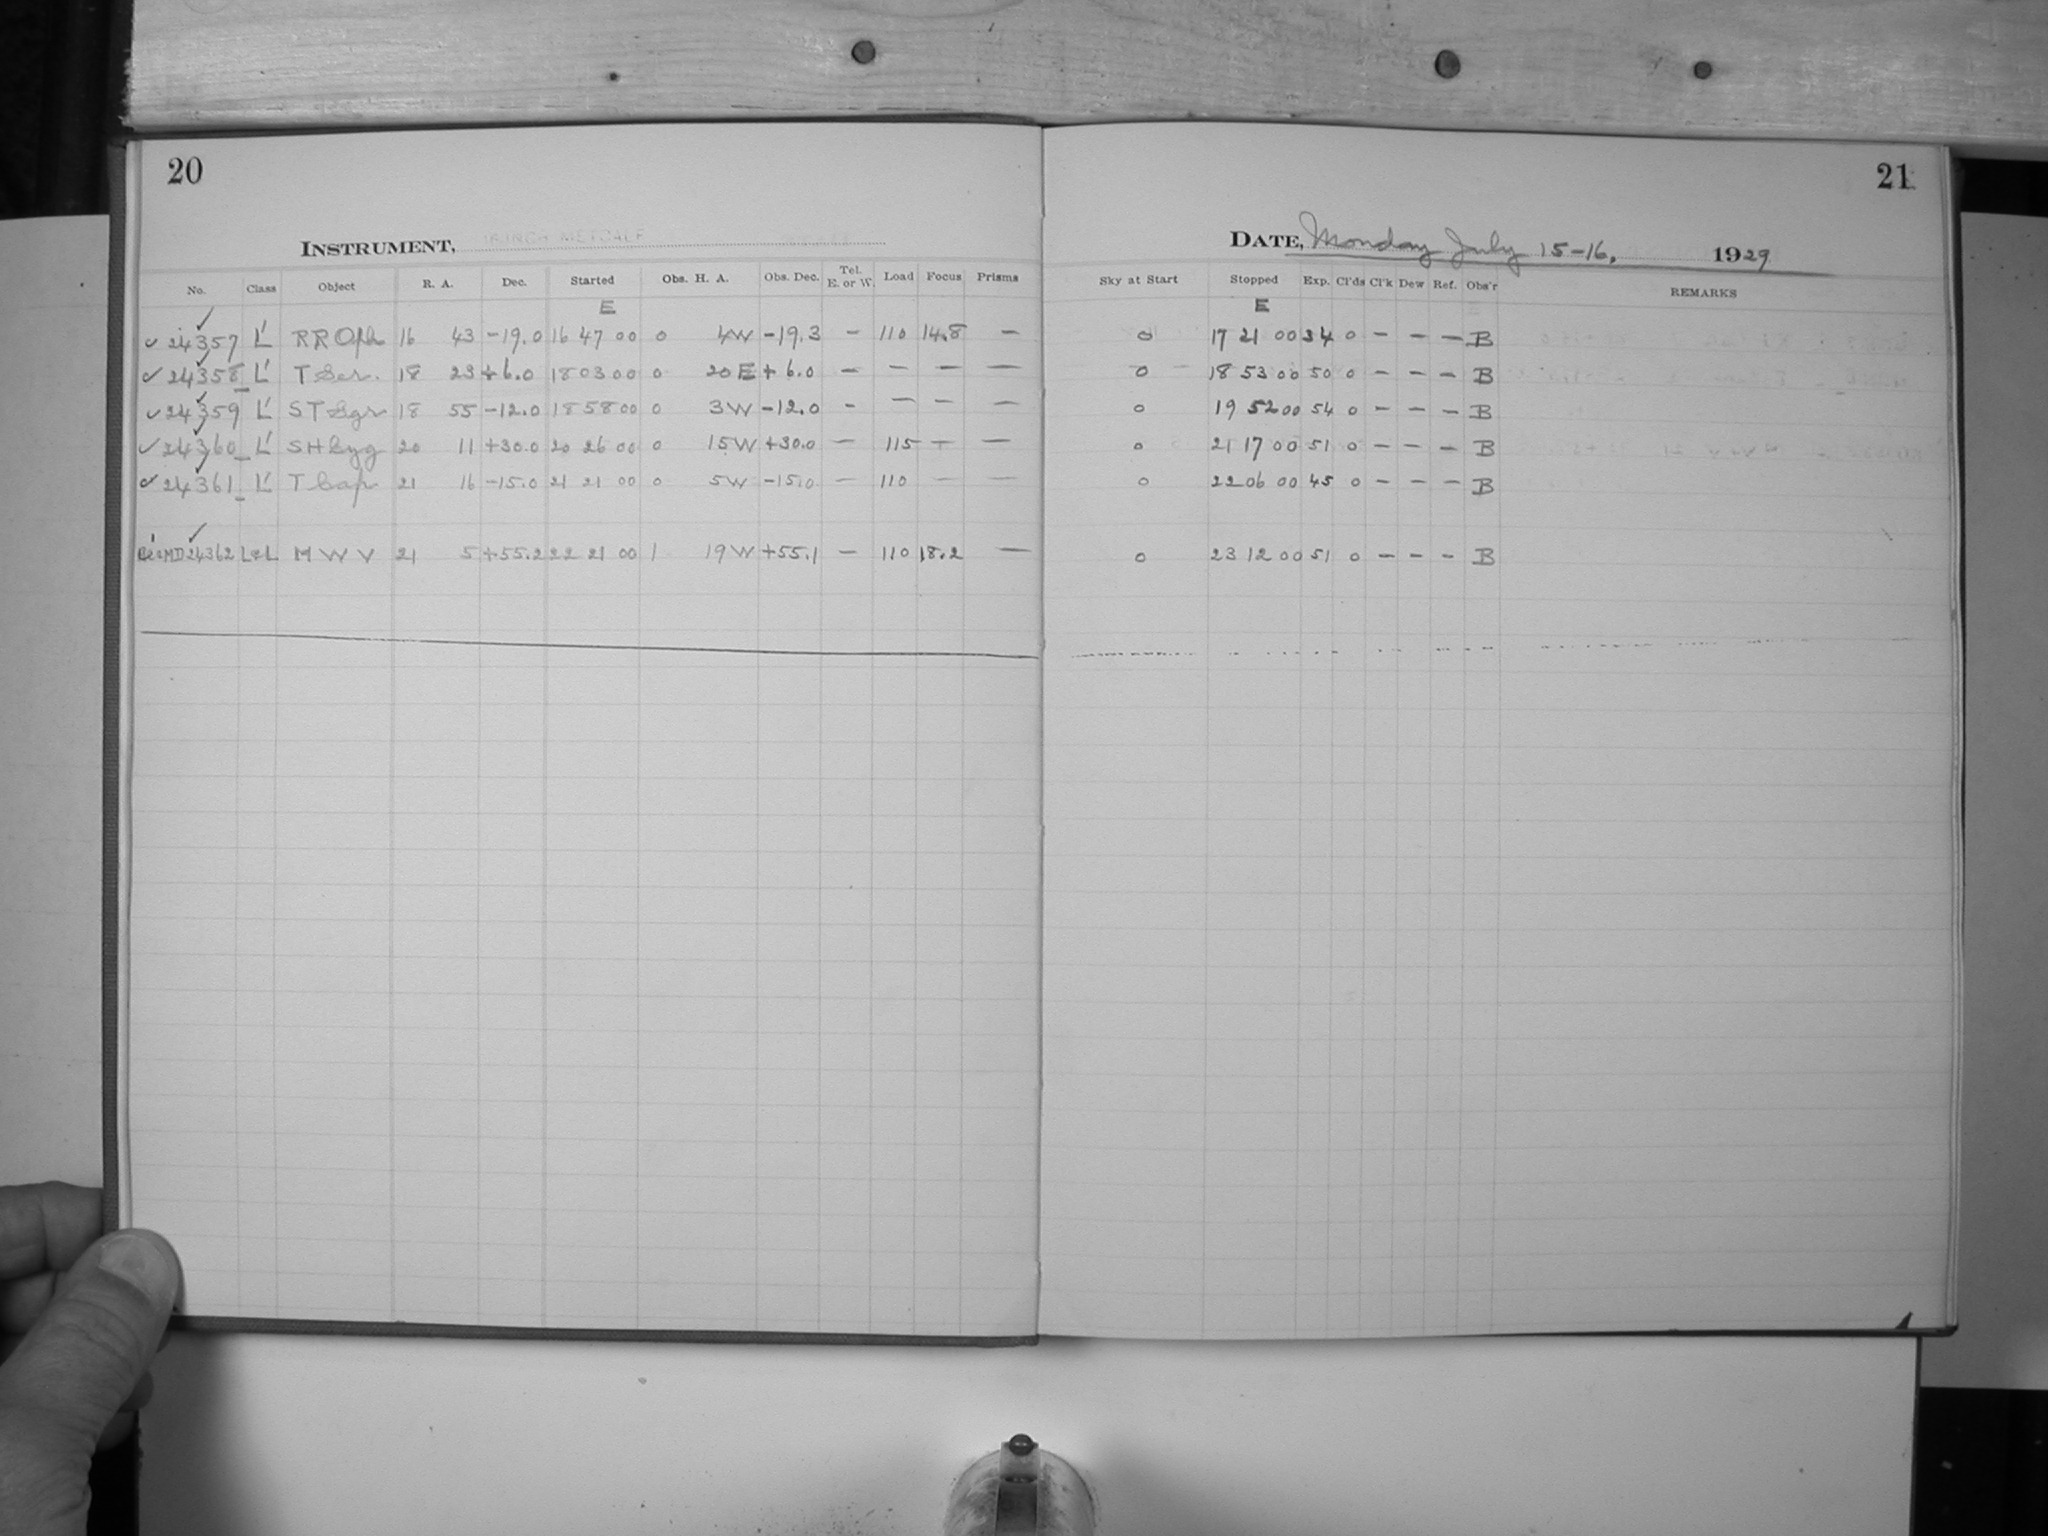 20
21
INSTRUMENT, 16 INCH METCALF
DATE, Monday July 15-16, 1929
No. Class Object R. A. Dec. Started Obs. H. A. Obs. Dec. Tel. E. or W. Load Focus Prisms Sky at Start Stopped Exp. Cl'ds Cl'k Dew Ref. Obs'r REMARKS
E E
✓ 24357 L' RR Oph 16 43 -19.0 16 47 00 0 4W -19.3 - 110 14.8 - 0 17 21 00 34 0 - - - B
✓ 24358 L' T Ser. 18 23 +6.0 18 03 00 0 20 E +6.0 - - - - 0 18 53 00 50 0 - - - B
✓ 24359 L' ST Sgr 18 55 -12.0 18 58 00 0 3W -12.0 - - - - 0 19 52 00 54 0 - - - B
✓ 24360 L' SH Cyg 20 11 +30.0 20 26 00 0 15W +30.0 - 115 - - 0 21 17 00 51 0 - - - B
✓ 24361 L' T Cap 21 16 -15.0 21 21 00 0 5W -15.0 - 110 - - 0 22 06 00 45 0 - - - B
MD24362 L&L M W V 21 5 +55.2 22 21 00 1 19W +55.1 - 110 18.2 - 0 23 12 00 51 0 - - - B